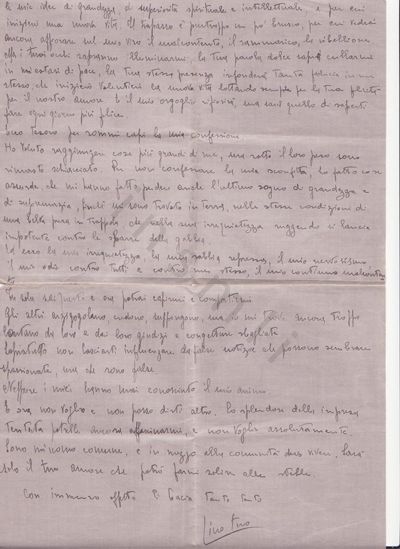 le mie idee di grandezza, di superiorità spirituale e intellettuale, e per cui
iniziai una nuova vita. Il trapasso è purtroppo un po' brusco, per cui vedrai
ancora affiorare sul mio viso il malcontento, il rammarico, la ribellione
ma i tuoi occhi sapranno illuminarmi, la tua parola dolce saprà cullarmi
in miei stati di pace, la tua stessa presenza infonderà tanta fiducia in me
stesso, che inizierò volentieri la nuova vita lottando sempre per la tua felicità
per il nostro amore. E il mio orgoglio riposerà, ma sarà quello di saperti
fare ogni giorno più felice.
Ecco tesoro per sommi capi la mia confessione
Ho voluto raggiungere cose più grandi di me, ma sotto il loro peso sono
rimasto schiacciato. Per non confessare la mia sconfitta, ho fatto cose
assurde, che mi hanno fatto perdere anche l'ultimo sogno di grandezza e
di supremazia, quindi mi sono trovato in terra, nelle stesse condizioni di
una belva presa in trappola che nella sua irrequietezza ruggendo si lancia
impotente contro le sbarre della gabbia.
Ed ecco la mia irrequietezza, la mia rabbia repressa, il mio nervosismo
il mio odio contro tutti e contro me stesso, il mio continuo malcontento
Tu sola sai questo e ora potrai capirmi e compatirmi
Gli altri arzigogolano, credono, suppongono, ma io mi trovo ancora troppo
lontano da loro e dai loro giudizi e congetture sbagliate
Soprattutto non lasciarti influenzare da false notizie che possono sembrare
spassionate, ma che sono false.
Neppure i miei hanno mai conosciuto il mio animo.
E ora non voglio e non posso dirti altro. Lo splendore della impresa
tentata potrebbe ancora affascinarmi, e non voglio assolutamente.
Sono un uomo comune, e in mezzo alla comunità devo vivere. Sarà
solo il tuo amore che potrà farmi salire alle stelle.
Con immenso affetto ti bacia tanto tanto